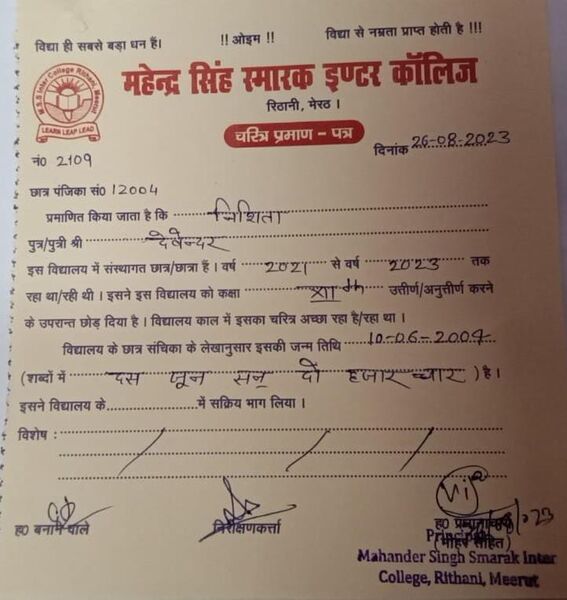 विद्या ही सबसे बड़ा धन हैं। !! ओइम !! विद्या से नम्रता प्राप्त होती है !!!
M.S.S Inter College Rithani, Meerut
LEARN LEAP LEAD
महेन्द्र सिंह स्मारक इण्टर कॉलिज
रिठानी, मेरठ ।
चरित्र प्रमाण - पत्र
दिनांक 26-08-2023
नं० 2109
छात्र पंजिका सं० 12004
प्रमाणित किया जाता है कि निशिता
पुत्र/पुत्री श्री देवेन्दर
इस विद्यालय में संस्थागत छात्र/छात्रा हैं । वर्ष 2021 से वर्ष 2023 तक
रहा था/रही थी । इसने इस विद्यालय को कक्षा XIIth उत्तीर्ण/अनुत्तीर्ण करने
के उपरान्त छोड़ दिया है । विद्यालय काल में इसका चरित्र अच्छा रहा है/रहा था ।
विद्यालय के छात्र संचिका के लेखानुसार इसकी जन्म तिथि 10-06-2004
(शब्दों में दस जून सन् दो हजार चार ) है ।
इसने विद्यालय के....................में सक्रिय भाग लिया ।
विशेष :
ह० बनाने वाले निरीक्षणकर्त्ता ह० प्रधानाचार्य
(मोहर सहित)
Principal
Mahander Singh Smarak Inter
College, Rithani, Meerut